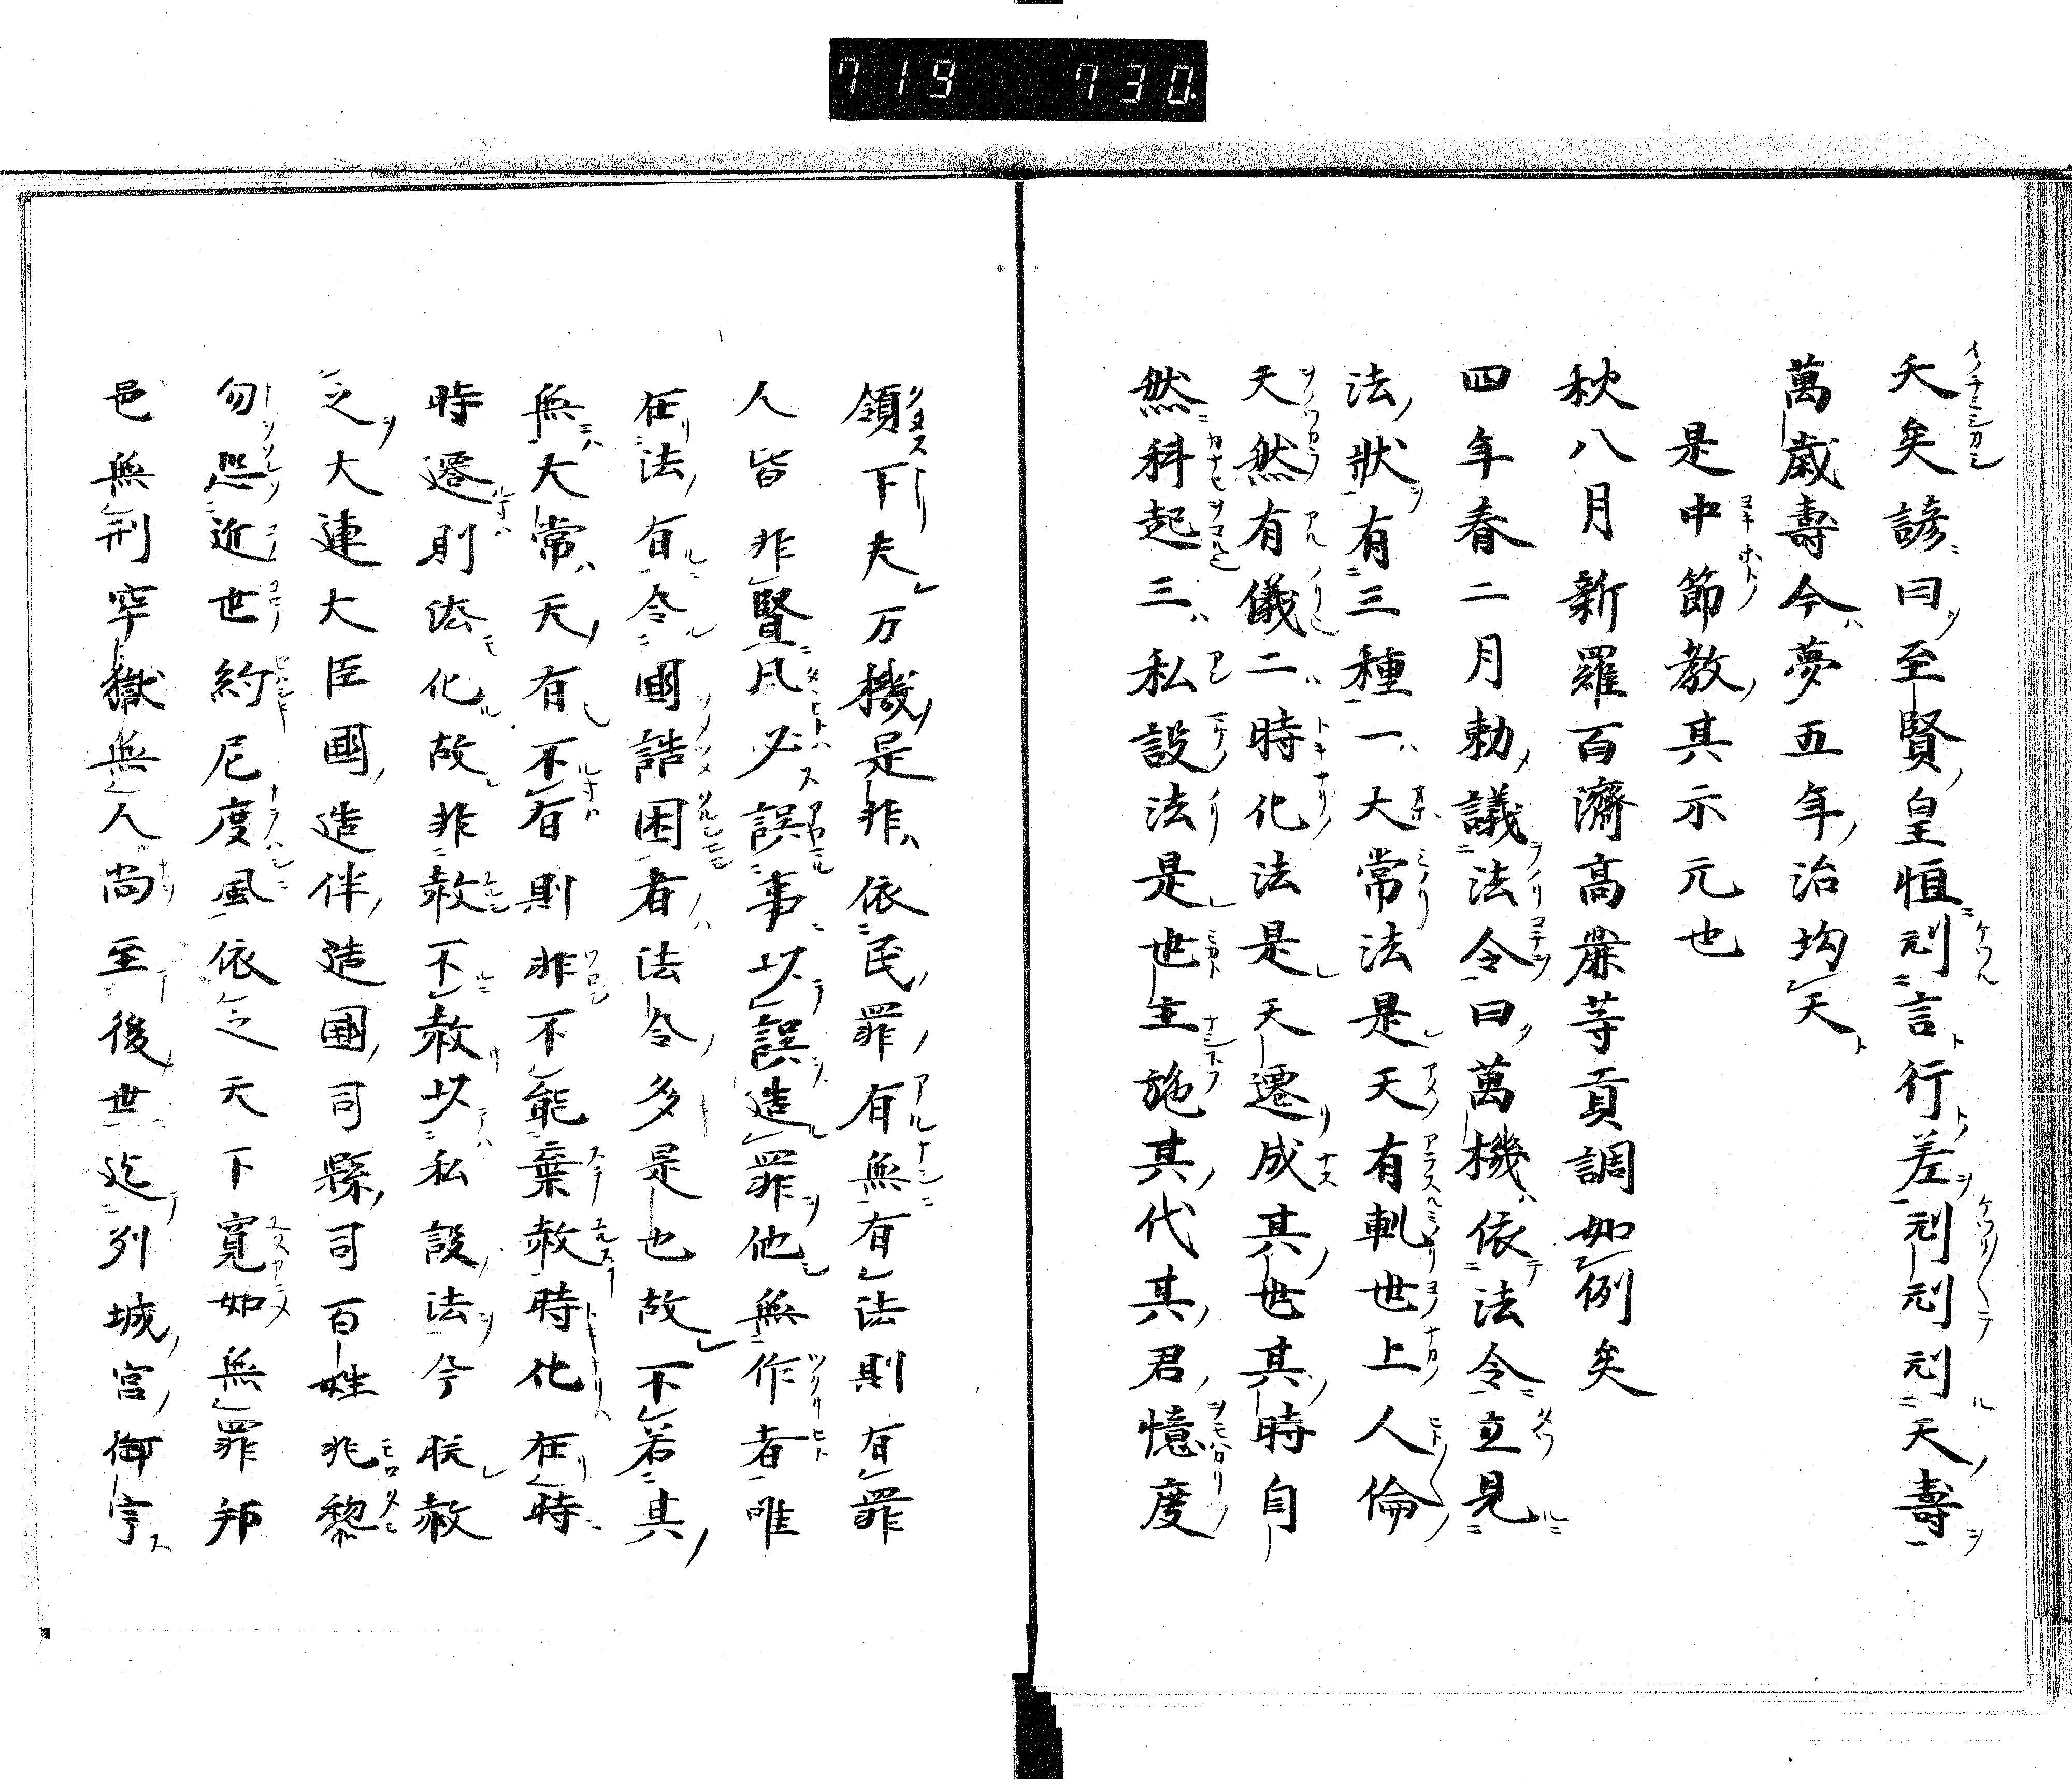 719 730
夭矣諺曰至賢皇恒刓言行差刓刓刓天壽
萬歳壽今夢五年治均天
是中節教其示元也
秋八月新羅百濟高麗等貢調如例矣
四年春二月勅議法令曰萬機依法令立見
法狀有三種一大常法是天有軌世上人倫
天然有儀二時化法是天遷成其世其時自
然科起三私設法是世主施其代其君憶度
領下夫万機是非依民罪有無有法則有罪
人皆非賢凡必誤事以誤造罪他無作者唯
在法有令國誥困者法令多是也故不若其
無大常天有不有則非不能棄赦時化在時
時遷則法化故非赦不赦以私設法今朕赦
之大連大臣國造伴造國司縣司百姓兆黎
勿恐近世約尼度風依之天下寛如無罪邦
邑無刑穽獄無人尚至後世迄列城宮御宇